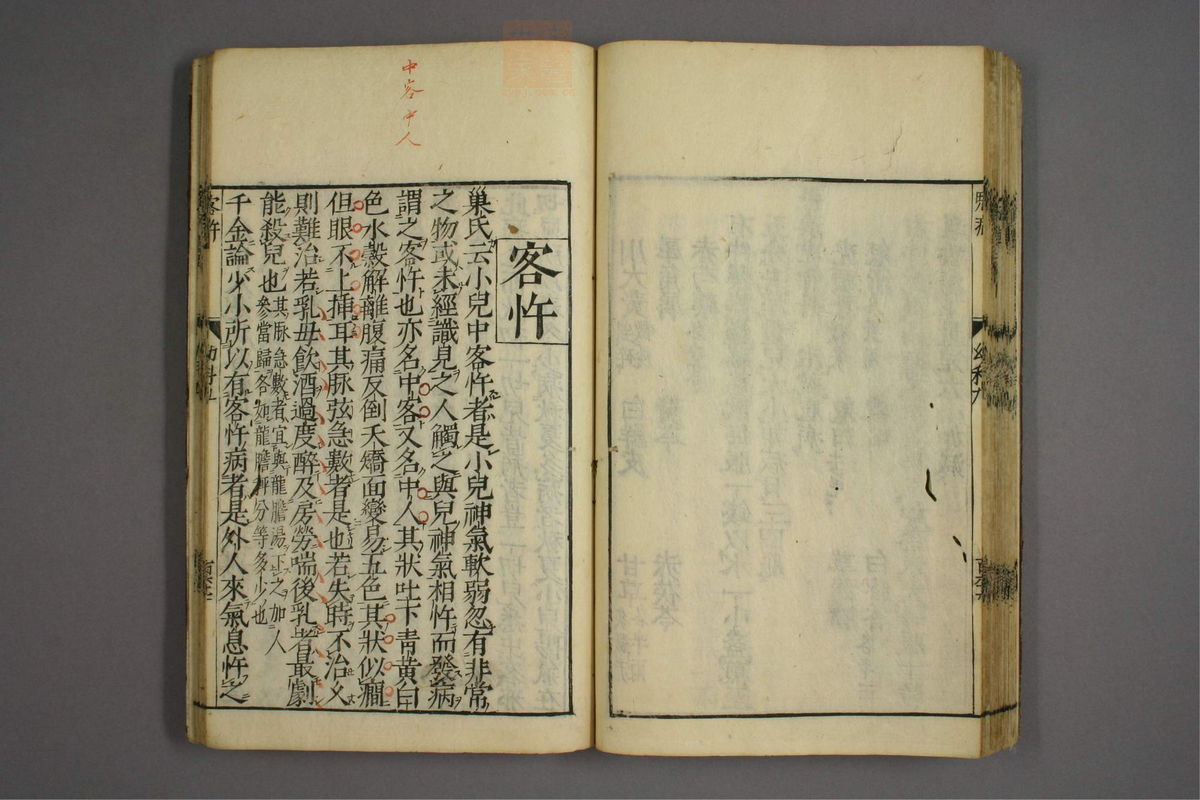 中客中人
客忤
巢氏云小兒中客忤者是小兒神氣軟弱忽有非常
之物或未經識見之人觸之與兒神氣相忤而發病
謂之客忤也亦名中客又名中人其狀吐下青黃白
色水穀解離腹痛反倒夭矯面變易五色其狀似癇
但眼不上揷耳其脉弦急數者是也若失時不治久
則難治若乳母飲酒過度醉及房勞喘後乳者最劇
能殺兒也其脉急數者宜與龍膽湯下之加人
參當歸各如龍膽秤分等多少也
千金論少小所以有客忤病者是外人來氣息忤之
客忤